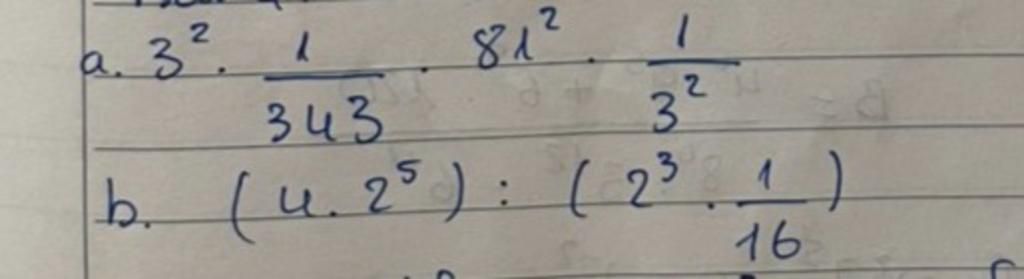 a. 3² . 1/343 . 81² . 1/3²
b. (4. 2⁵) : (2³ . 1/16)